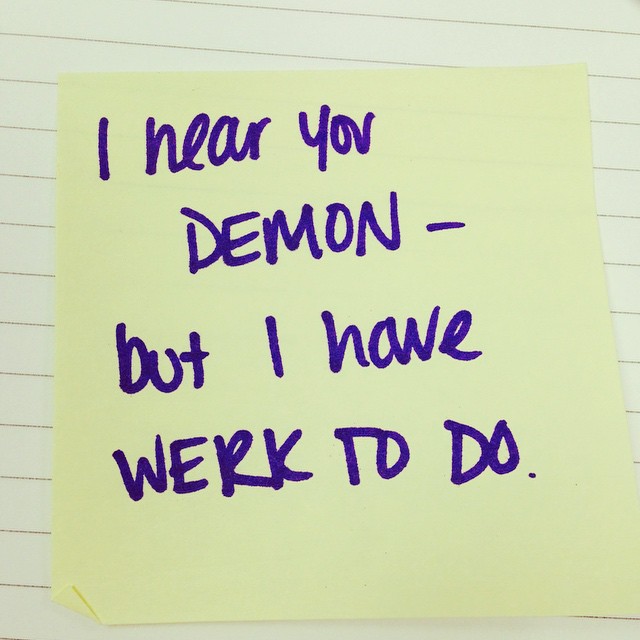 I hear you
DEMON -
but I have
WERK TO DO.